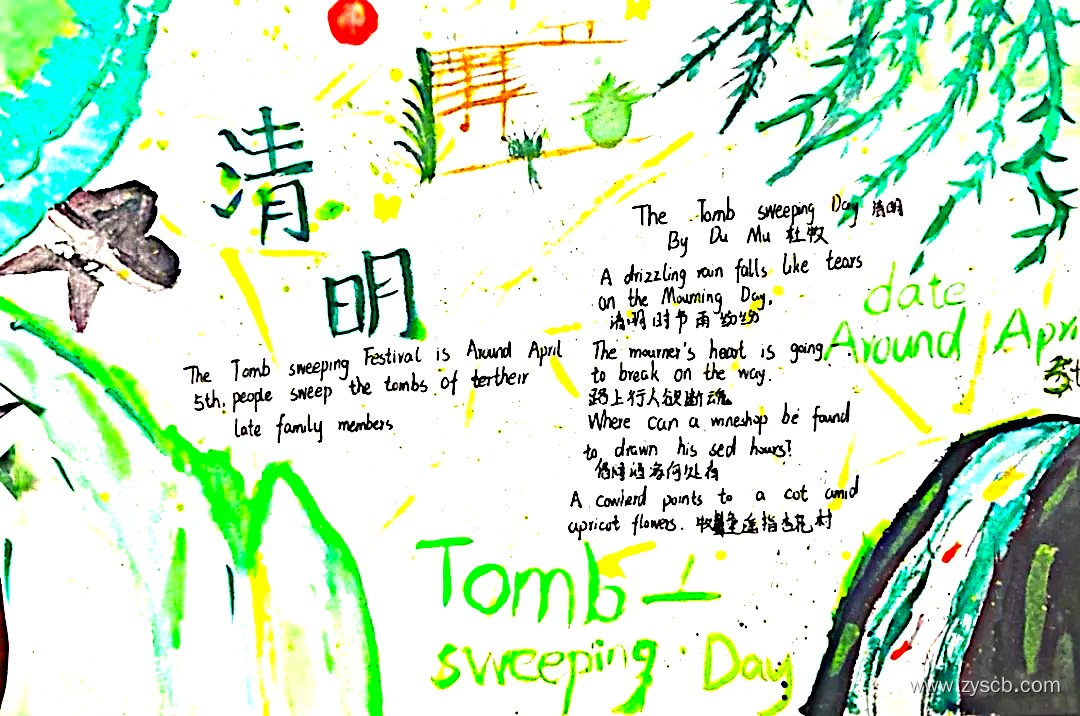 清
明
The Tomb sweeping Festival is Around April
5th. people sweep the tombs of tertheir
late family members
The Tomb sweeping Day 清明
By Du Mu 杜牧
A drizzling rain falls like tears
on the Mourning Day.
清明时节雨纷纷
The mourner's heart is going
to break on the way.
路上行人欲断魂
Where can a wineshop be found
to drawn his sed hours?
借问酒家何处有
A cowherd points to a cot amid
apricot flowers. 牧童遥指杏花村
date
Around Apri
Tomb
sweeping Day
www.lzyscb.com